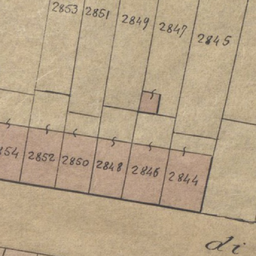 2853 2851 2849 2847 2845
2852 2850 2848 2846 2844
di